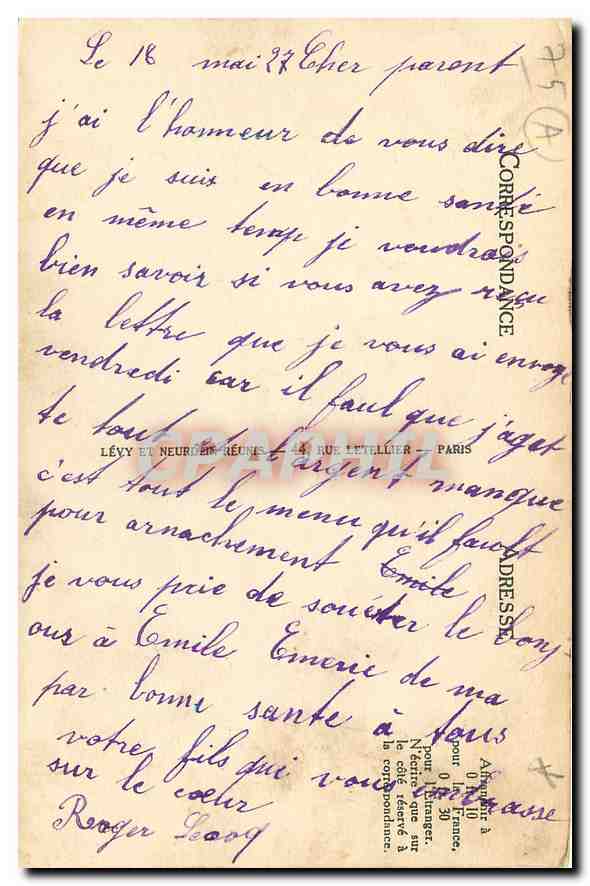 Le 18 mai 27 Cher parent
j'ai l'honneur de vous dire
que je suis en bonne santé
en même temp je voudrais
bien savoir si vous avez reçu
la lettre que je vous ai envoye
vendredi car il faut que j'aget
te tout et l'argent manque
c'est tout le menu qu'il fault
pour arnachement Emile
je vous prie de souéter le bonj-
our à Emile Emerie de ma
par bonne sante à tous
votre fils qui vous embrasse
sur le cœur
Roger Lecoq
75 (A)
CORRESPONDANCE
LÉVY ET NEURDEIN RÉUNIS — 44, RUE LETELLIER — PARIS
ADRESSE
Affranchir à
0 f. 10
pour la France,
0 f. 30
pour l'étranger.
N'écrire que sur
le côté réservé à
la correspondance.
CPAPHIL